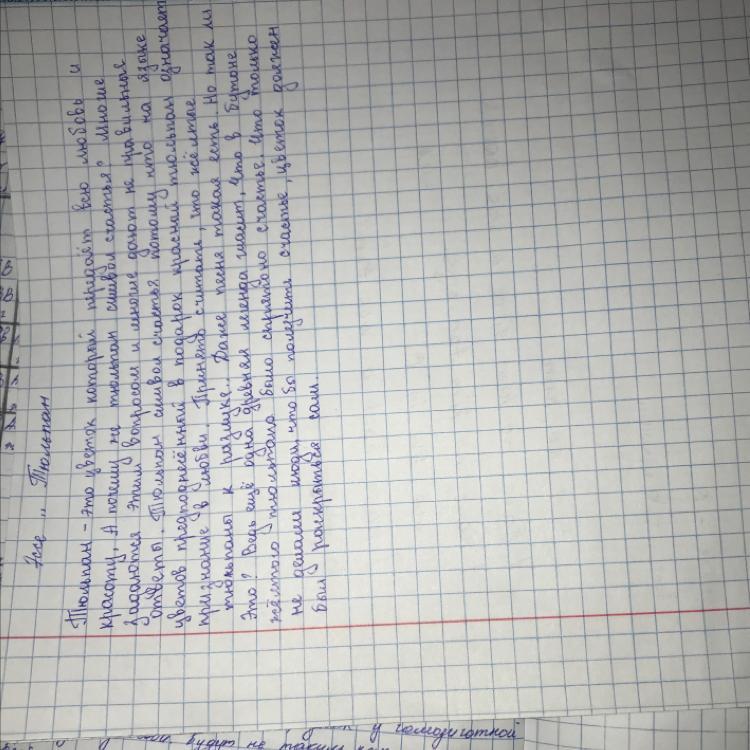 Эсе „ Тюльпан
Тюльпан - это цветок который передаёт всю любовь и
красоту. А почему не тюльпан символ счастья? Многие
задаются этим вопросом и многие дают не правильные
ответы. Тюльпан символ счастья потому что на языке
цветов предподнесённый в подарок красный тюльпан означает
признание в любви. Принято считать, что жёлтые
тюльпаны к разлуке.. Даже песня такая есть. Но так ли
это? Ведь ещё одна древняя легенда гласит, что в бутоне
жёлтого тюльпана было спрятано счастье. Что только
не делали люди, что бы получить счастье, цветок должен
был раскрыться сам.
будут не таким
у гомозиготной